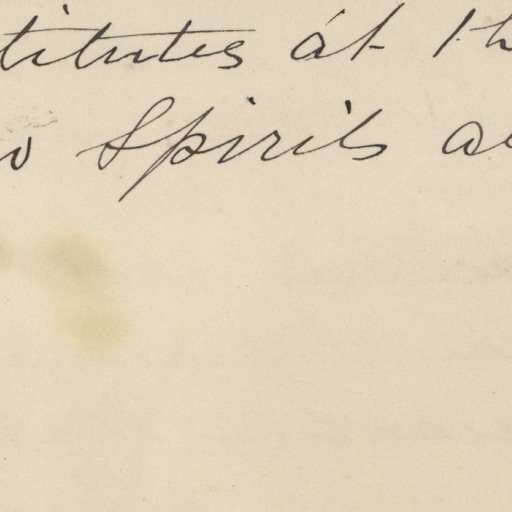 titutes at th
Spirits a